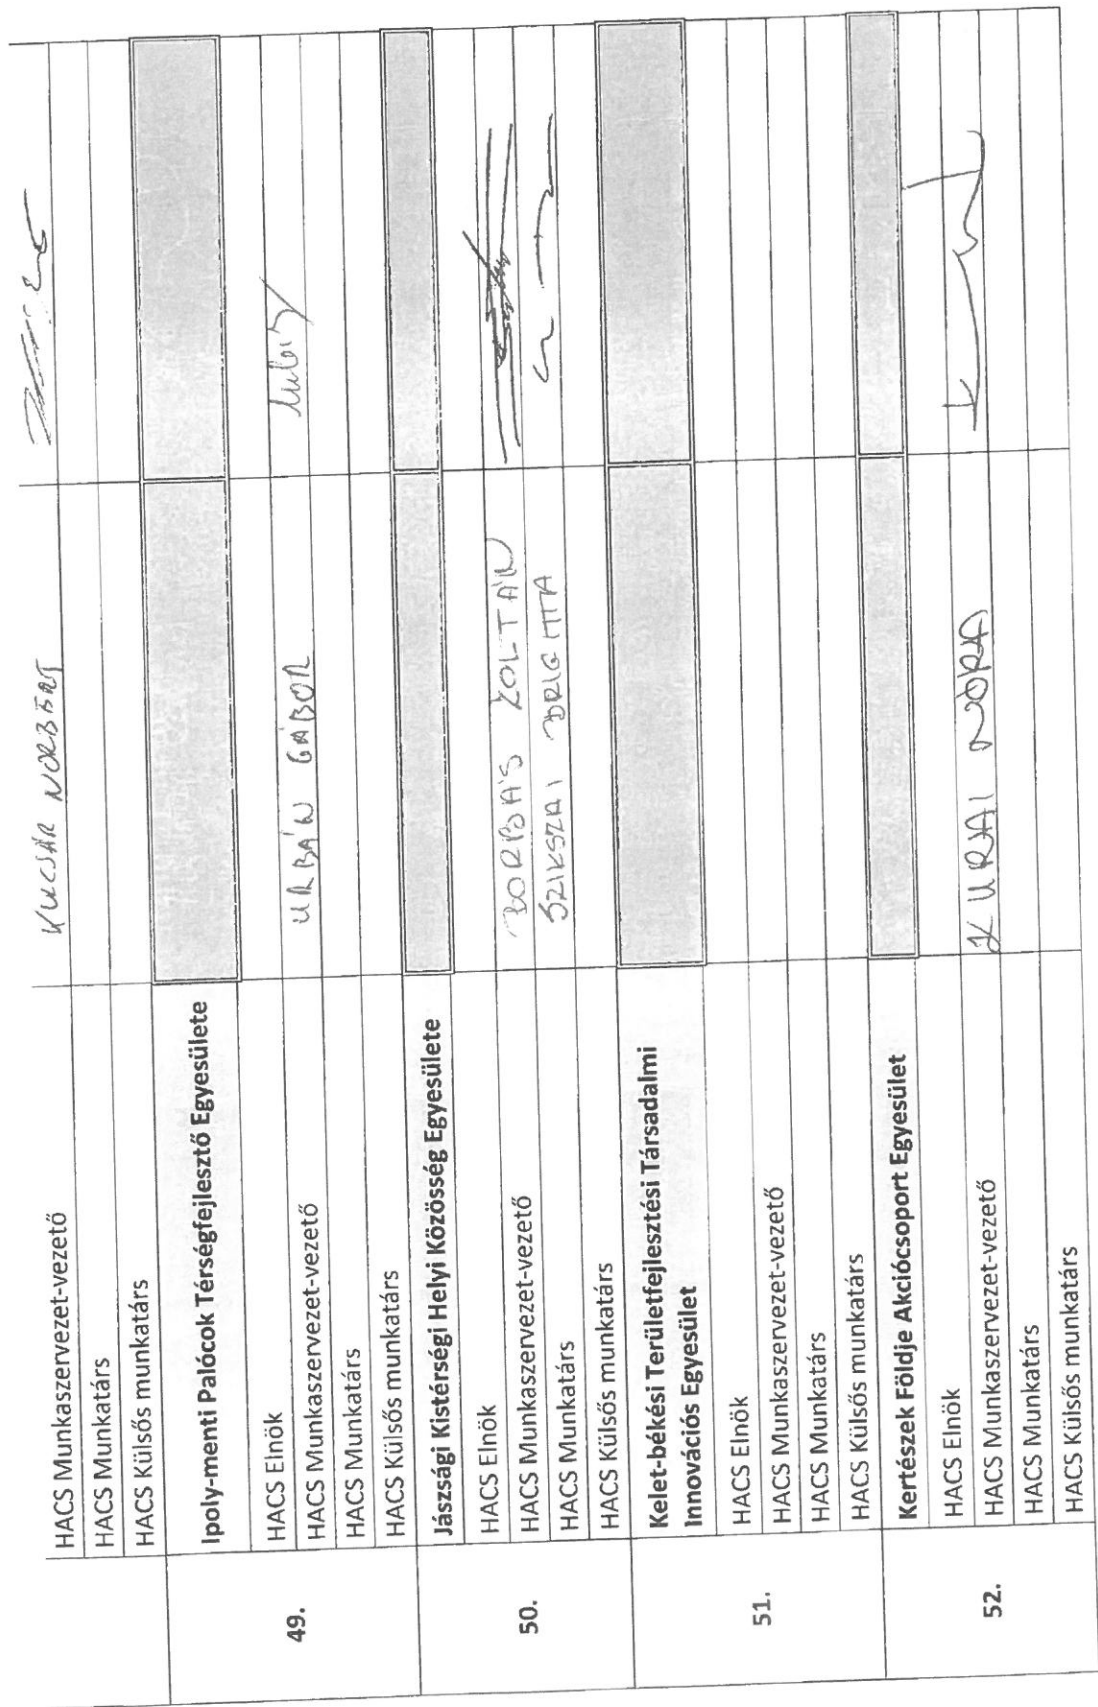 HACS Munkaszervezet-vezető KUCSÁR NORBERT
HACS Munkatárs
HACS Külsős munkatárs
49.
Ipoly-menti Palócok Térségfejlesztő Egyesülete
HACS Elnök
HACS Munkaszervezet-vezető URBÁN GÁBOR
HACS Munkatárs
HACS Külsős munkatárs
50.
Jászsági Kistérségi Helyi Közösség Egyesülete
HACS Elnök
HACS Munkaszervezet-vezető BORBÁS ZOLTÁN
HACS Munkatárs SZIKSZAI BRIGITTA
HACS Külsős munkatárs
51.
Kelet-békési Területfejlesztési Társadalmi
Innovációs Egyesület
HACS Elnök
HACS Munkaszervezet-vezető
HACS Munkatárs
HACS Külsős munkatárs
52.
Kertészek Földje Akciócsoport Egyesület
HACS Elnök
HACS Munkaszervezet-vezető KURAI NÓRA
HACS Munkatárs
HACS Külsős munkatárs